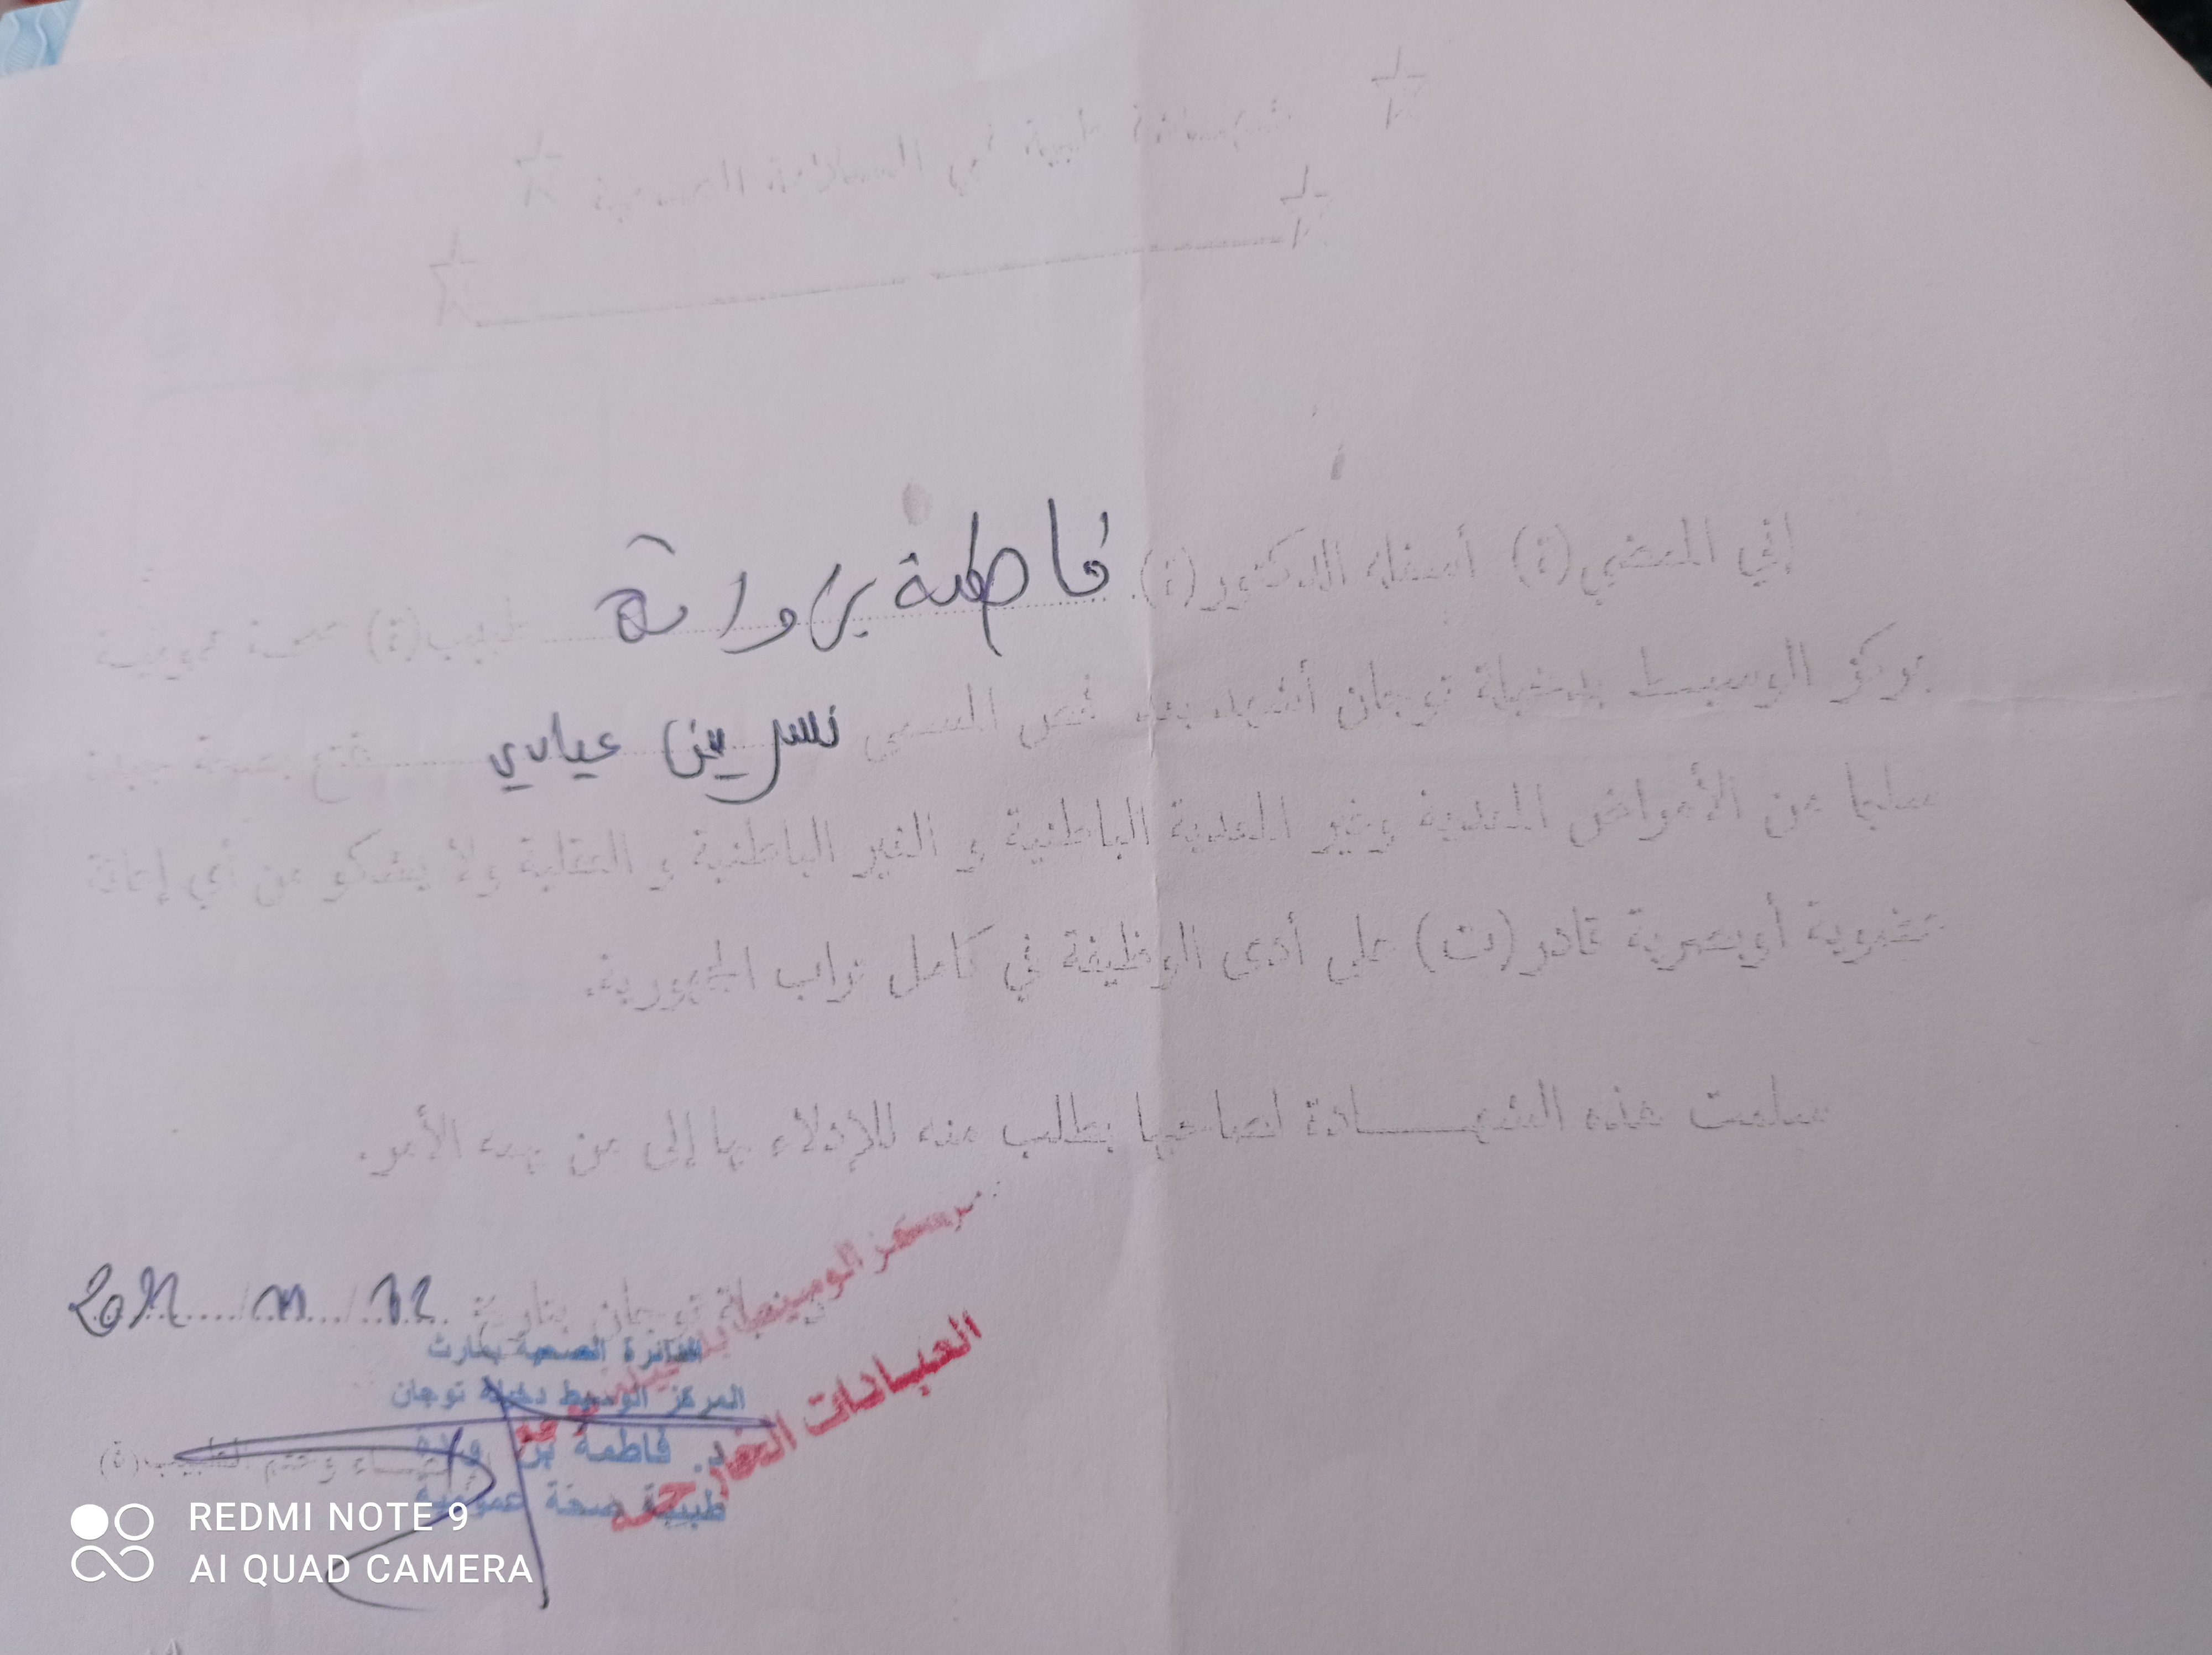 شهادة طبية في السلامة الصحية
إني الممضي(ة) أسفله الدكتور(ة) فاطمة بن وادة طبيب(ة) صحة عمومية
بمركز الوسيط بدخيلة توجان أشهد بعد فحص المسمى نسرين عيادي يتمتع بصحة جيدة
سليما من الأمراض المعدية وغير المعدية الباطنية و الغير الباطنية و العقلية ولا يشكو من أي إعاقة
عضوية أوبصرية قادر(ت) على أدى الوظيفة في كامل تراب الجمهورية.
سلمت هذه الشهـــــادة لصاحبها بطلب منه للإدلاء بها إلى من يهمه الأمر.
دخيلة توجان بتاريخ
مركز الوسيط
العيادات الخارجية
الدائرة الصحية بمارث
المركز الوسيط دخيلة توجان
د. فاطمة بن
طبيبة صحة عمومية
إمضــاء وختم الطبيب(ة)
REDMI NOTE 9
AI QUAD CAMERA